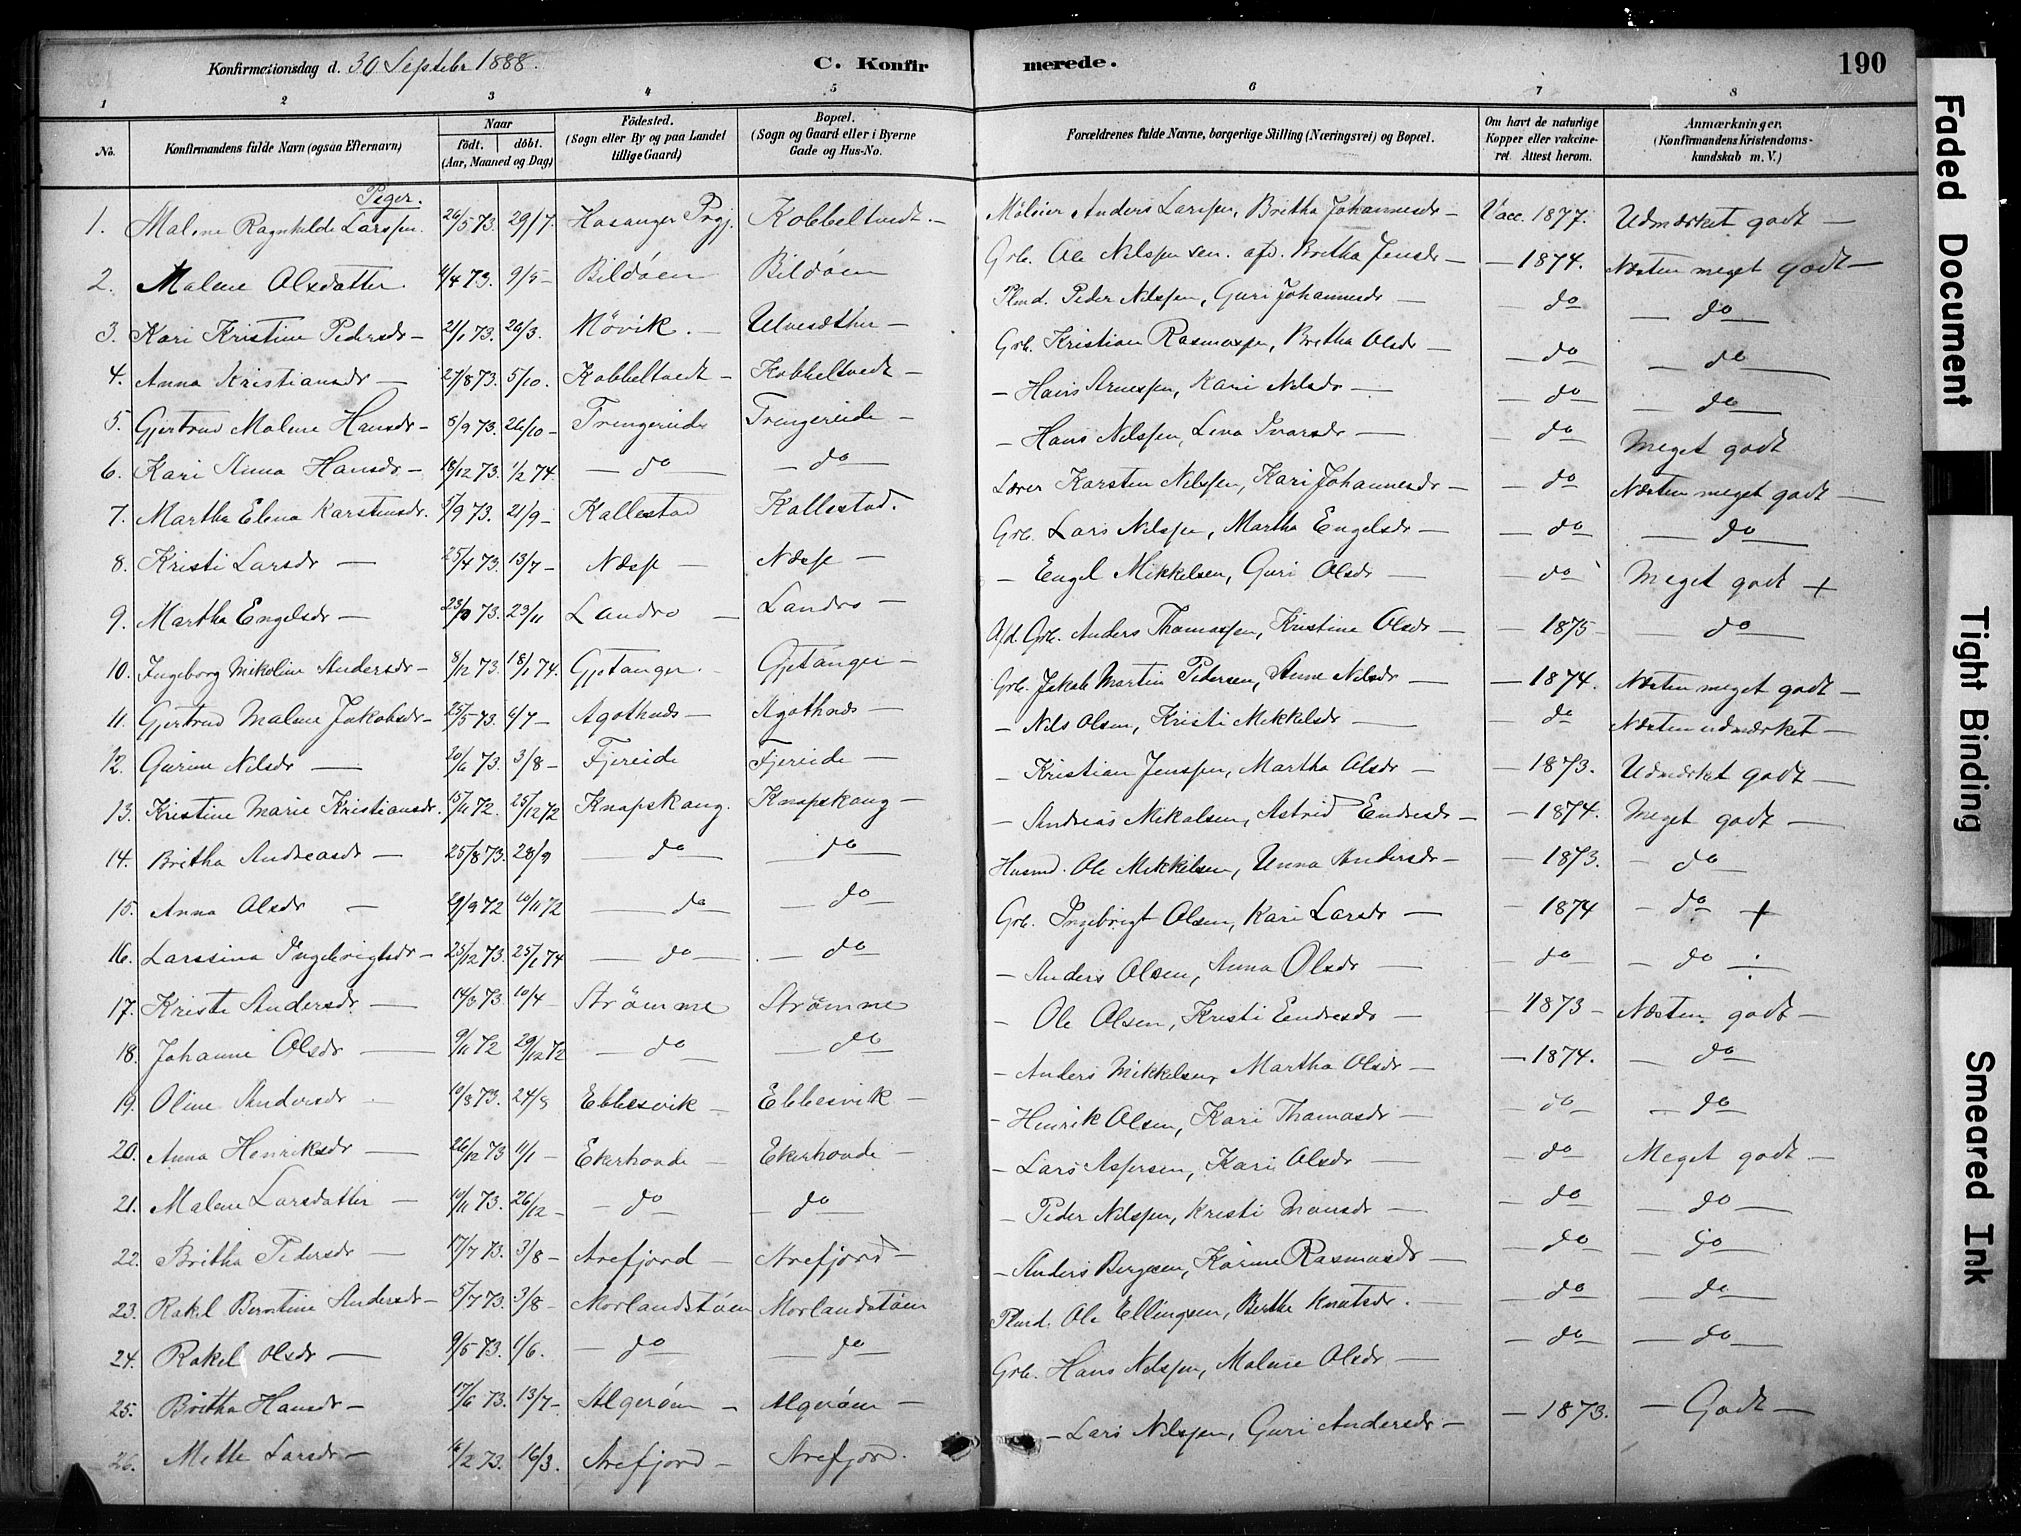 Konfirmationsdag d. 30 Septebr 1888. C. Konfirmerede. 190
1 2 3 4 5 6 7 8
No. Konfirmandens fulde Navn (ogsaa Efternavn) Naar födt. döbt. (Aar, Maaned og Dag) Födested. (Sogn eller By og paa Landet tillige Gaard) Bopæl. (Sogn og Gaard eller i Byerne Gade og Hus-No. Forældrenes fulde Navne, borgerlige Stilling (Næringsvei) og Bopæl. Om havt de naturlige Kopper eller vakcineret. Attest herom. Anmærkninger. (Konfirmandens Kristendomskundskab m. V.)
Piger.
1. Malene Ragnhilde Larssen. 26/5 73. 29/7. Hosanger Prgj. Kobbeltvedt. – Anders Larssen, Britha Johannesdr – Vacc. 1877. Udmærket godt –
2. Malene Olsdatter. 4/4 73. 9/5 – Bildøen Bildøen Grb. Ole Nilssen sen. afd. Britha Jensdr – – 1874. Næsten meget godt –
3. Kari Kristine Pedersdr – 21/1 73. 26/3. Møvik. – Ulvesæther – Plmd. Peder Nilssen, Guri Johannesdr – – do – do
4. Anna Kristiansdr – 27/8 73. 5/10. Kobbeltvedt – Kobbeltvedt – Grb. Kristian Rasmussen, Britha Olsdr – – do – do
5. Gjertrud Malene Hansdr – 8/9 73. 26/10 – Trengereide Trengereide – – Hans Arnessen, Kari Nilsdr – – do – do
6. Kari Anna Hansdr – 18/12 73. 1/2 74. – do – – do – Hans Nilssen, Lena Ivarsdr – – do Meget godt
7. Martha Elena Karstensdr. 5/9 73. 21/9 – Kallestad Kallestad. Lærer Karsten Nilssen, Kari Johannesdr – – do Næsten meget godt –
8. Kristi Larsdr – 25/4 73. 13/7 – Næss – Næss – Grb. Lars Nilssen, Martha Engelsdr – – do – do –
9. Martha Engelsdr – 73. 23/11 Landro – Landro – – Engel Mikkelsen, Guri Olsdr – – do Meget godt +
10. Ingeborg Mikoline Andersdr – 8/12 73. 18/1 74. Gjetanger. Gjetanger – Afd. Grb. Anders Thomassen, Kristine Olsdr – – 1875 – do
11. Gjertrud Malene Jakobsdr – 25/5 73. 6/7 – Agothnes – Agothnes – Grb. Jakob Martin Pedersen, Anne Nilsdr – – 1874. Næsten meget godt –
12. Gurine Nilsdr – 20/6 73. 3/8 – Fjereide Fjereide – – Nils Olsen, Kristi Mikkelsdr – – do Næsten udmærket –
13. Kristine Marie Kristiansdr. 15/11 72. 25/12 72 Knapskaug. Knapskaug – – Kristian Jenssen, Martha Olsdr – – 1873. Udmærket godt –
14. Britha Andreasdr – 25/8 73. 28/9 – do – – do – Andreas Mikalsen, Astrid Endresdr – – 1874. Meget godt –
15. Anna Olsdr – 29/9 72 10/11 72 – do – do Husmd. Ole Mikkelsen, Unna Andersdr – – 1873. – do
16. Larssina Ingebrigtsdr – 23/12 73. 25/1 74 – do – – do Grb. Ingebrigt Olsen, Kari Larsdr – – 1874 – do +
17. Kristi Andersdr. – 14/3 73. 10/4 – Strømme Strømme – Anders Olsen, Anna Olsdr – – do – do ÷
18. Johanne Olsdr – 9/11 72 29/12 72 – do – – do – Ole Olsen, Kristi Endresdr – – 1873 – Næsten godt –
19. Oline Andersdr – 10/8 73. 24/8 Ebbesvik – Ebbesvik – – Anders Mikkelsen, Martha Olsdr – – 1874. – do
20. Anna Henriksdr – 26/12 73 11/1 – Ekerhovde – Ekerhovde – – Henrik Olsen, Kari Thomasdr – – do – do
21. Malene Larsdatter – 10/11 73. 26/12 – – do – do – Lars Aspersen, Kari Olsdr – – do Meget godt –
22. Britha Pedersdr – 17/7 73. 3/8 – Arefjord – Arefjord – – Peder Nilssen, Kristi Monsdr – – do – do –
23. Rakel Berntine Andersdr – 5/7 73. 3/8 – Morlandstøen Morlandstøen – Anders Bergesen, Karine Rasmusdr – – do – do
24. Rakel Olsdr – 9/5 73. 1/6. – do – do Plmd. Ole Ellingsen, Berthe Knutsdr. – – do – do
25. Britha Hansdr – 17/6 73. 13/7 – Algerøen – Algerøen – Grb. Hans Nilssen, Malene Olsdr – – do – do
26. Mette Larsdr – 16/2 73. 16/3. Arefjord – Arefjord. – Lars Nilssen, Guri Andersdr – – 1873. – Godt –
Faded Document
Tight Binding
Smeared Ink